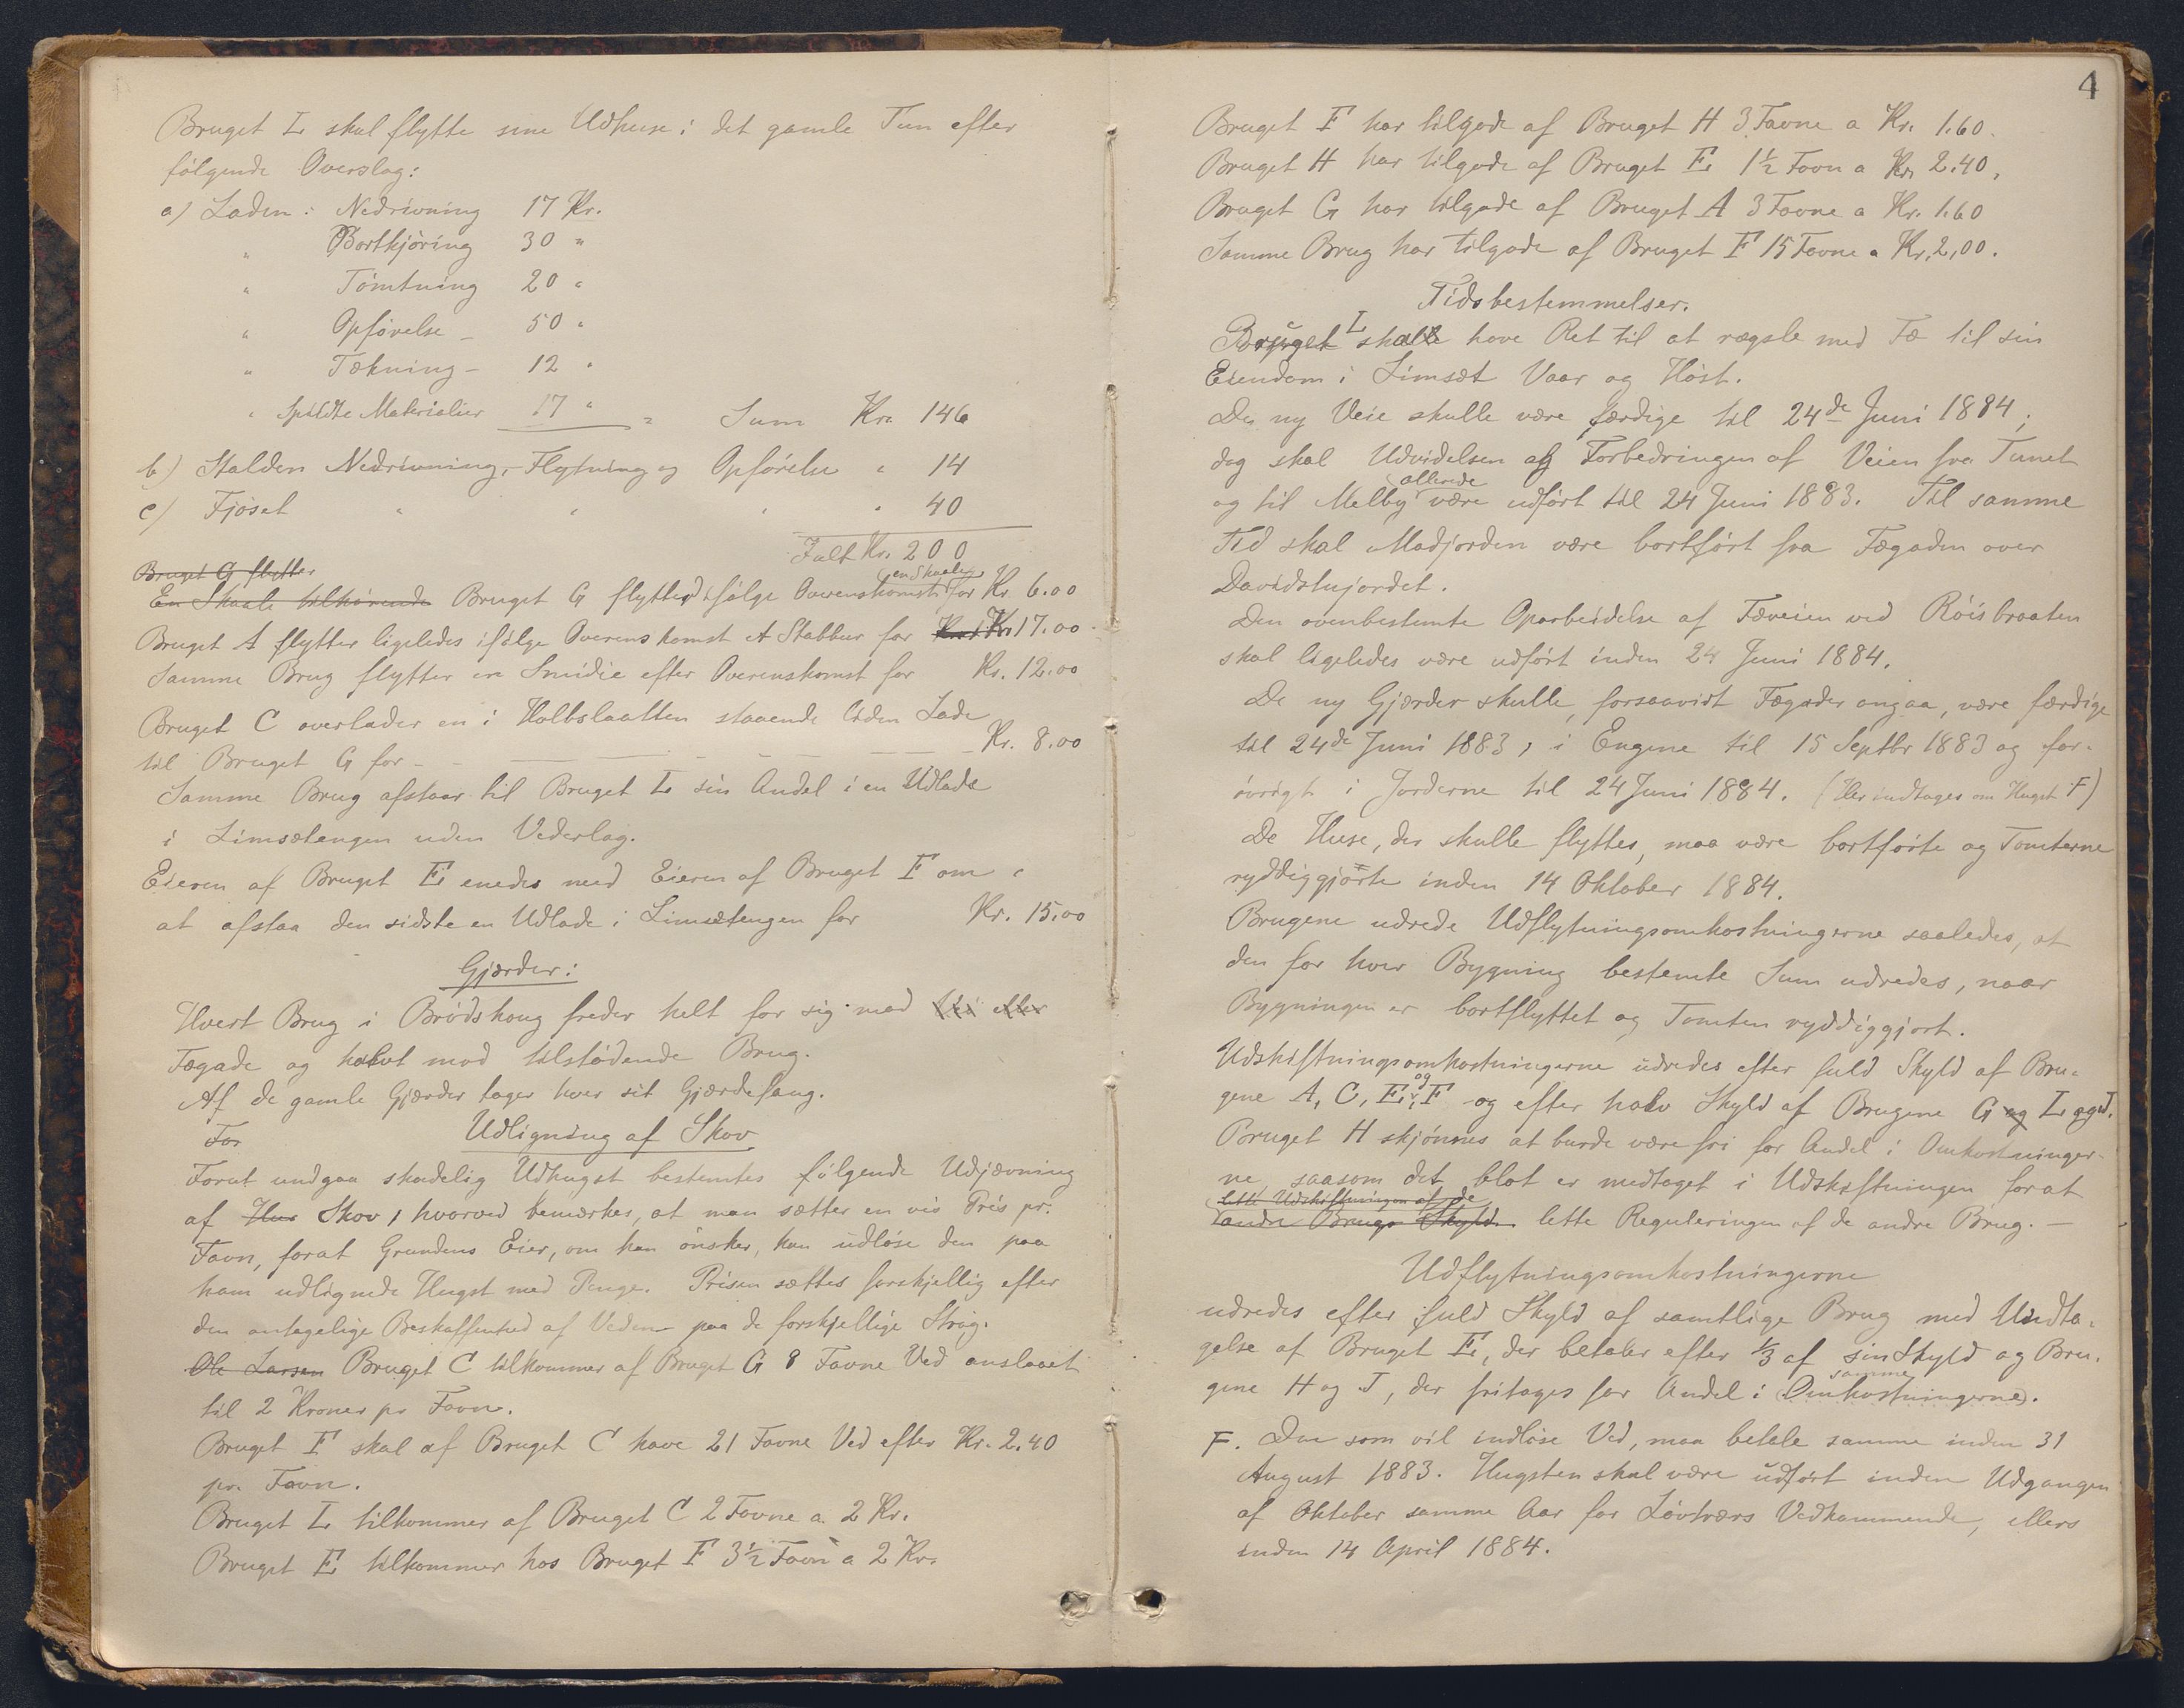 Bruget L skal flytte sine Udhuse i det gamle Tun efter
følgende Overslag:
a) Laden: Nedrivning 17 Kr.
" Bortkjøring 30 "
" Tømtning 20 "
" Opførelse 50 "
" Tækning 12 "
" Spildte Materialier 17 " = Sum Kr. 146
b) Stalden Nedrivning, Flytning og Opførelse " 14
c) Fjøset " " " " 40
Ialt Kr. 200
Bruget G flytter
En Skaale tilhørende Bruget G flytter ifølge Overenskomst en Skaale for Kr. 6.00
Bruget A flytter ligeledes ifølge Overenskomst et Stabbur for Kr. 17.00
Samme Brug flytter en Smidie efter Overenskomst for Kr. 12.00
Bruget C overlader en i Halbslaatten staaende liden Lade
til Bruget G for - - Kr. 8.00
Samme Brug afstaar til Bruget L sin Andel i en Udlade
i Limsætengen uden Vederlag.
Eieren af Bruget E enedes med Eieren af Bruget F om
at afstaa den sidste en Udlade i Limsætengen for Kr. 15.00
Gjærder:
Hvert Brug i Brødshoug freder helt for sig mod Vei eller
Fægade og halvt mod tilstødende Brug.
Af de gamle Gjærder tager hver sit Gjærdefang.
For
Udligning af Skov
Forat undgaa skadelig Udhugst bestemtes følgende Udjævning
af Hus Skov, hvorved bemærkes, at man sætter en vis Pris pr.
Favn, forat Grundens Eier, om han ønsker, kan udløse den paa
ham udlignede Hugst med Penge. Prisen sættes forskjellig efter
den antagelige Beskaffenhed af Veden paa de forskjellige Strøg.
Ole Larsen Bruget C tilkommer af Bruget G 8 Favne Ved anslaaet
til 2 Kroner pr Favn.
Bruget F skal af Bruget C have 21 Favne Ved efter Kr. 2.40
pr. Favn.
Bruget L tilkommer af Bruget C 2 Favne a 2 Kr.
Bruget E tilkommer hos Bruget F 3½ Favn a 2 Kr.
4
Bruget F har tilgode af Bruget H 3 Favne a Kr. 1.60.
Bruget H har tilgode af Bruget E 1½ Favn a Kr. 2.40.
Bruget G har tilgode af Bruget A 3 Favne a Kr. 1.60
Samme Brug har tilgode af Bruget F 15 Favne a Kr. 2,00.
Tidsbestemmelser.
Bruget L skal have Ret til at rægsle med Fæ til sin
Eiendom i Limsæt Vaar og Høst.
De ny Veie skulle være færdige til 24de Juni 1884,
dog skal Udvidelsen og Forbedringen af Veien fra Tunet
og til Melby allerede være udført til 24 Juni 1883. Til samme
Tid skal Madjorden være bortført fra Fægaden over
Davidstujordet.
Den ovenbestemte Oparbeidelse af Fæveien ved Röisbraaten
skal ligeledes være udført inden 24 Juni 1884.
De ny Gjærder skulle, forsaavidt Fægader angaa, være færdige
til 24de Juni 1883, i Engene til 15 Septbr 1883 og for-
øvrigt i Jorderne til 24 Juni 1884. (Her indtages om Hugst F)
De Huse, der skulle flyttes, maa være bortførte og Tomterne
ryddiggjorte inden 14 Oktober 1884.
Brugene udrede Udflytningsomkostningerne saaledes, at
den for hver Bygning bestemte Sum udredes, naar
Bygningen er bortflyttet og Tomten ryddiggjort.
Udskiftningsomkostningerne udredes efter fuld Skyld af Bru-
gene A, C, E, og F og efter halv Skyld af Brugene G og L og J.
Bruget H skjønnes at burde være fri for Andel i Omkostninger-
ne, saasom det blot er medtaget i Udskiftningen forat
lette Udskiftningen af de
andre Brugs Skyld lette Reguleringen af de andre Brug. —
Udflytningsomkostningerne
udredes efter fuld Skyld af samtlige Brug med Undta-
gelse af Bruget E, der betaler efter ⅓ af sin Skyld og Bru-
gene H og J, der fritages for Andel i samme Omkostningerne.
F. Den som vil indløse Ved, maa betale samme inden 31
August 1883. Hugsten skal være udført inden Udgangen
af Oktober samme Aar for Løvtrærs Vedkommende, ellers
inden 14 April 1884.